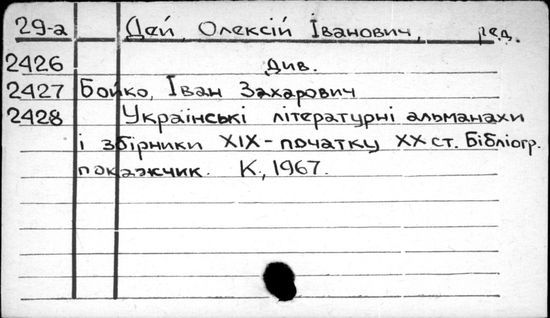 29-а Дей, Олексій Іванович, ред.
2426 Див.
2427 Бойко, Іван Захарович
2428 Українські літературні альманахи
і збірники XIX - початку XX ст. Бібліогр.
покажчик. К., 1967.